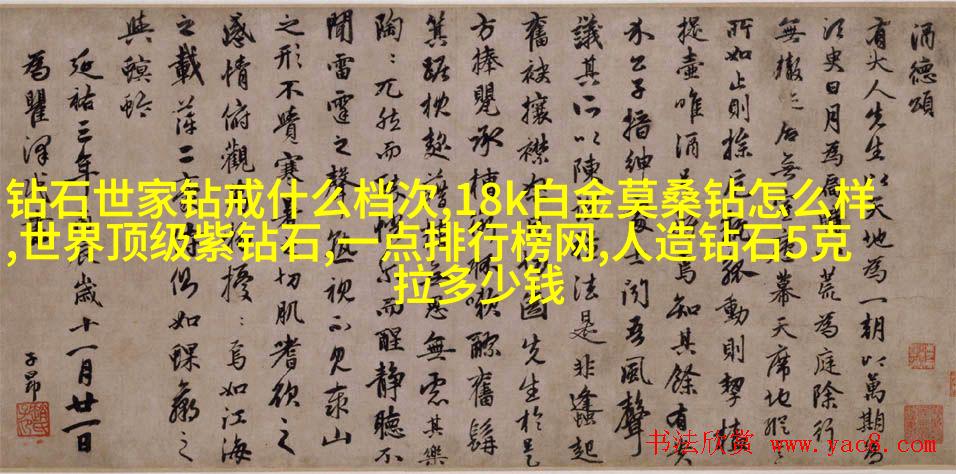 酒德頌
有大人先生以天地為一朝以萬期為
須臾日月為荒為庭除行
無轍迹居無幕天席地縱
所如止則操執觚動則挈榼
提壺唯酒焉知其餘有貴
介公子搢紳處士聞吾風聲
議其所以陳法是非蠭起
奮袂攘襟先生於是
方捧甖承槽漱醪奮髯
箕踞枕麴無慮其樂
陶：兀然而而醒靜聽不
聞雷霆之聲孰視不見泰山
之形不覺寒之切肌嗜欲之
感情俯觀擾：焉如江海
之載萍二侍側如蜾蠃之
與螟蛉
延祐三年歲十一月廿一日
為瞿澤
子昂
钻石世家钻戒什么档次,18k白金莫桑钻怎么样
,世界顶级紫钻石,一点排行榜网,人造钻石5克
拉多少钱
书法欣赏 www.yac8.com